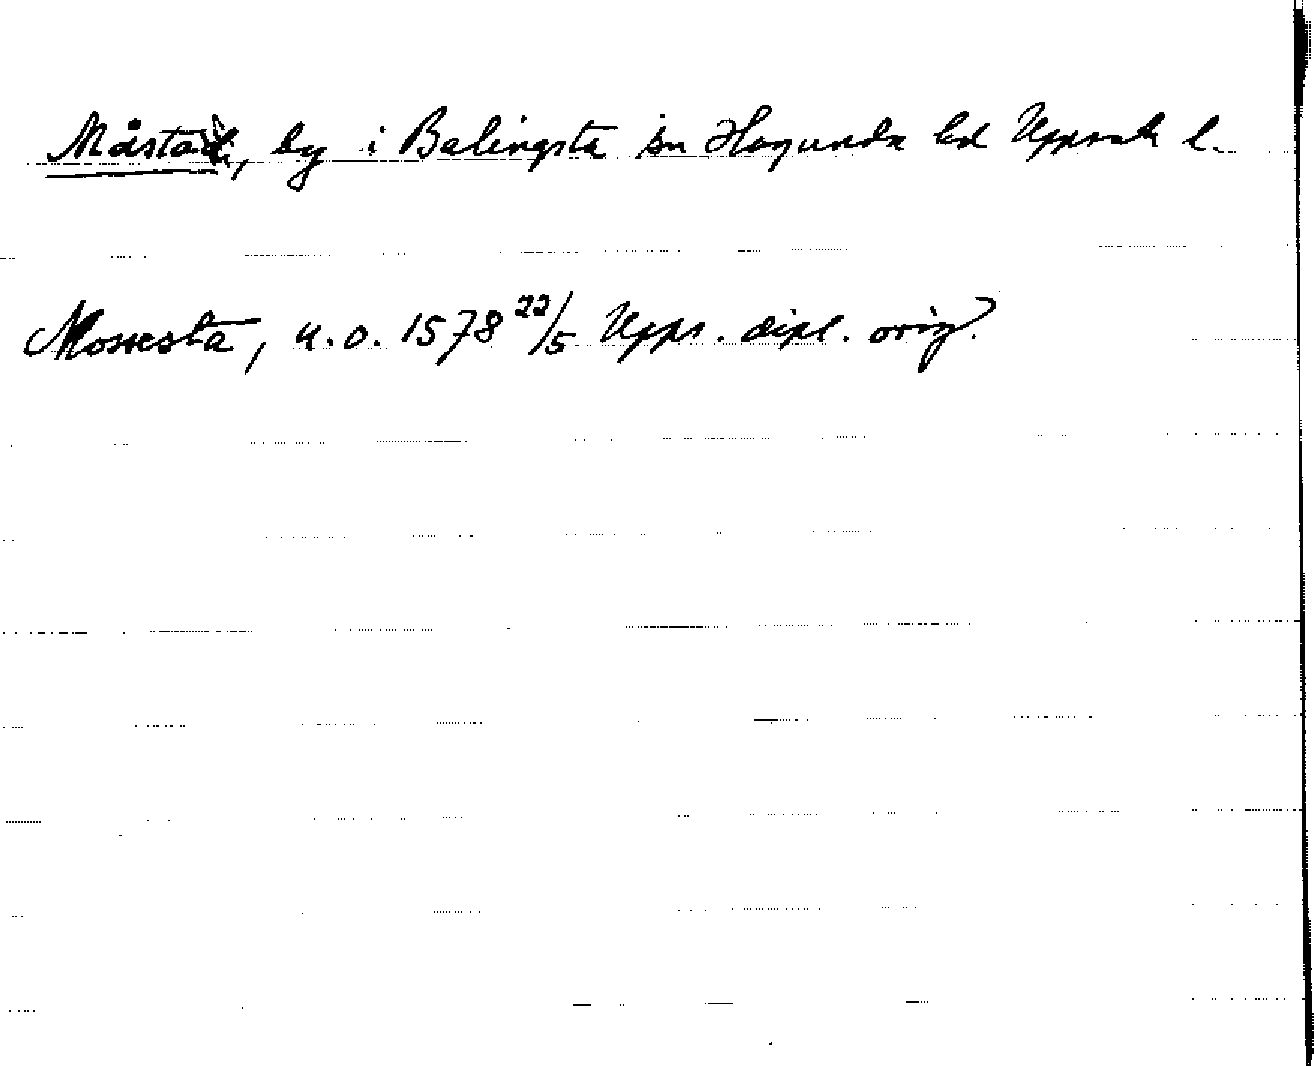 Måsta, by i Balingsta sn Hagunda hd Uppsala l.
Mossesta, u.o. 1578 22/5 Upps. dipl. orig.